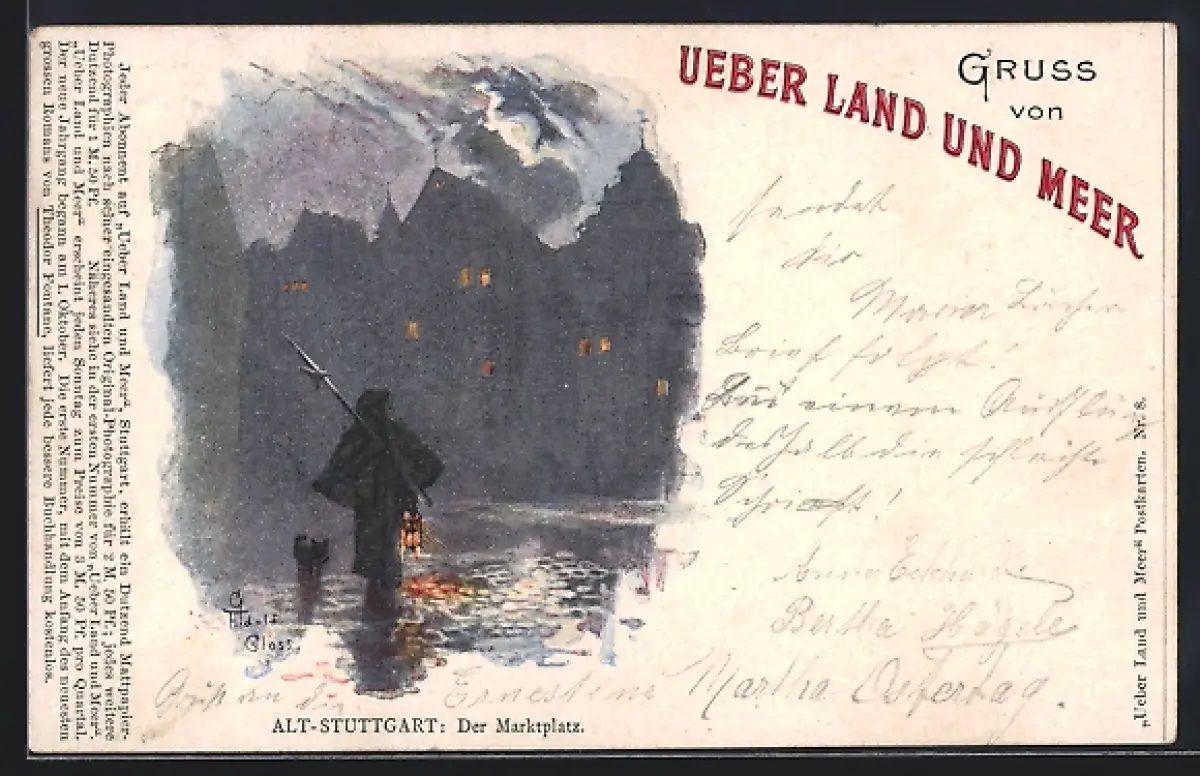 GRUSS
von
UEBER LAND UND MEER
sendet
dir
Maria
Brief folgt!
Aus einem Ausflug
deshalb die schlechte
Schrift!
Anna
Bertha Hägele
Gruß an die Ernestine Martha Ostertag.
ALT-STUTTGART: Der Marktplatz.
Jeder Abonnent auf „Ueber Land und Meer“, Stuttgart, erhält ein Dutzend Mattpapier-
Photographien nach seiner eingesandten Original-Photographie für 2 M. 50 Pf.; jedes weitere
Dutzend für 1 M. 50 Pf. Näheres siehe in der ersten Nummer von „Ueber Land und Meer“.
„Ueber Land und Meer“ erscheint jeden Sonntag zum Preise von 3 M. 50 Pf. pro Quartal.
Der neue Jahrgang begann am 1. Oktober. Die erste Nummer, mit dem Anfang des neuesten
grossen Romans von Theodor Fontane, liefert jede bessere Buchhandlung kostenlos.
„Ueber Land und Meer“ Postkarten. Nr. 8.